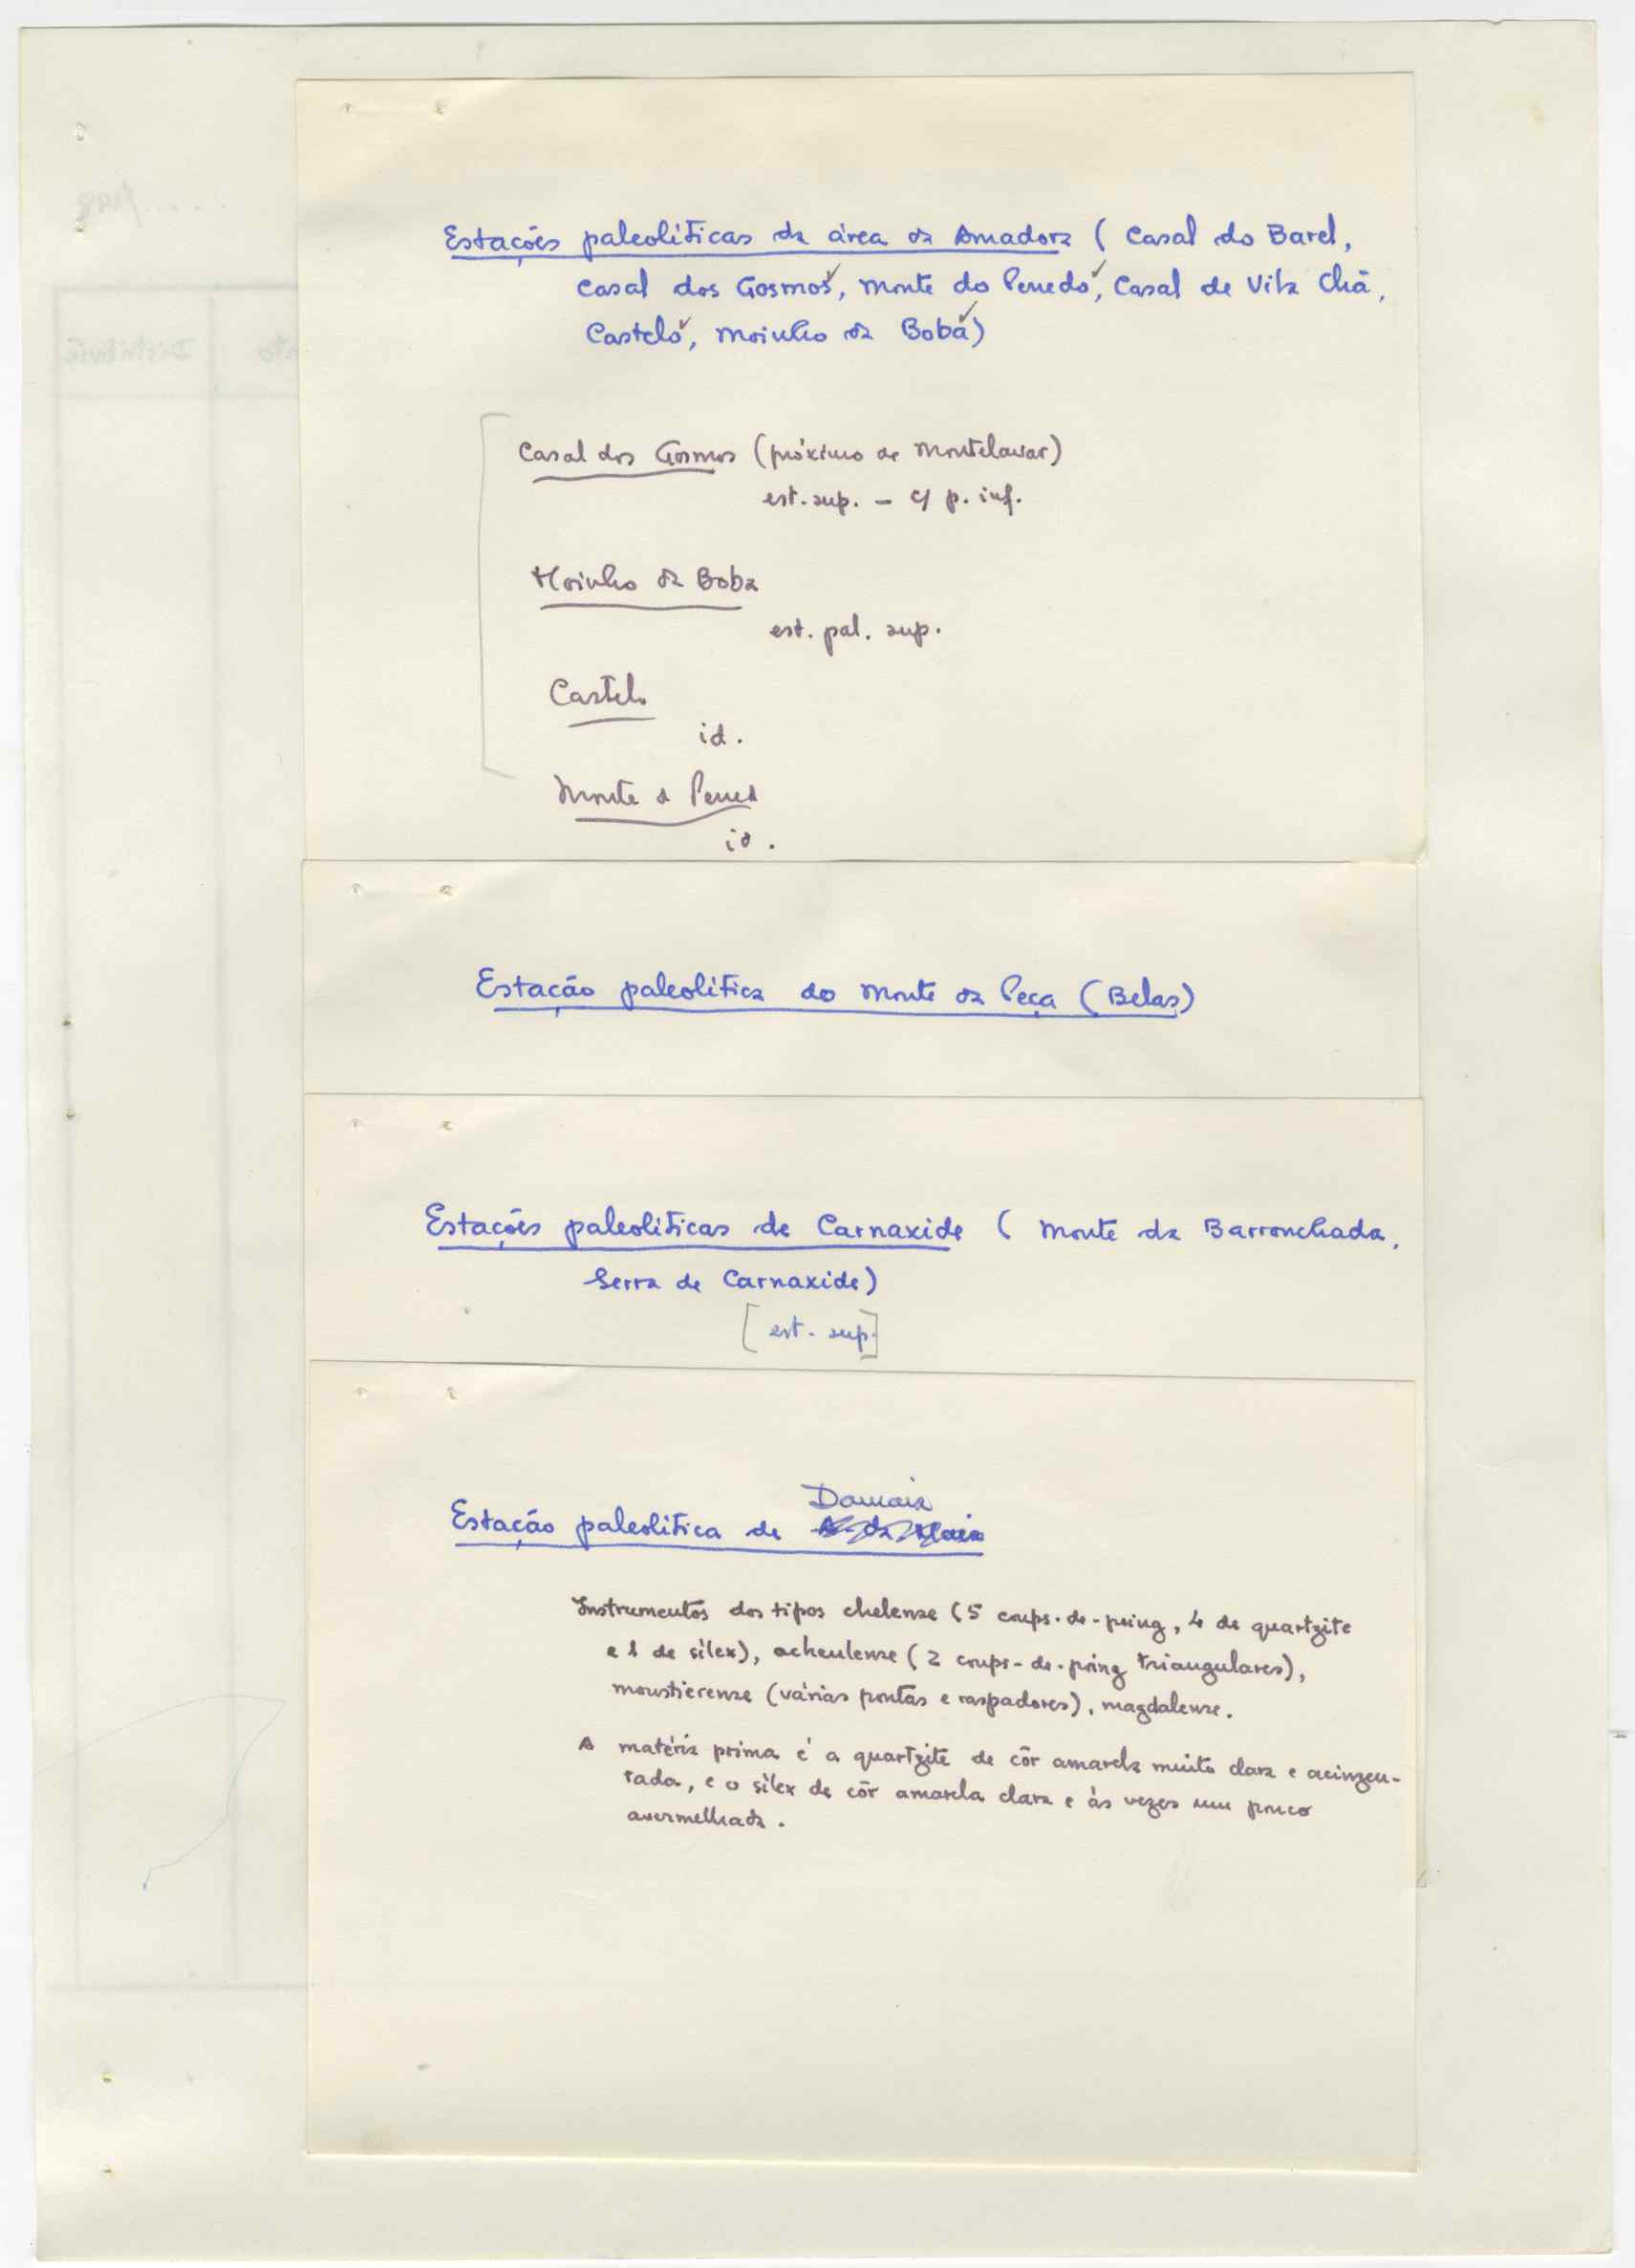 Estações paleolíticas da área da Amadora ( Casal do Barel,
Casal dos Gosmos, Monte do Penedo, Casal de Vila Chã,
Castelo, Moinho da Boba)
Casal dos Gosmos (próximo de Montelavar)
est. sup. - c/ p. inf.
Moinho da Boba
est. pal. sup.
Castelo
id.
Monte do Penedo
id.
Estação paleolítica do Monte da Peça (Belas)
Estações paleolíticas de Carnaxide ( Monte da Barronchada,
Serra de Carnaxide)
[est. sup.]
Damaia
Estação paleolítica de
Instrumentos dos tipos chelense (5 coups-de-poing, 4 de quartzite
e 1 de sílex), acheulense (2 coups-de-poing triangulares),
moustierense (várias pontas e raspadores), magdalense.
A matéria prima é a quartzite de côr amarela muito clara e acinzen-
tada, e o sílex de côr amarela clara e às vezes um pouco
avermelhada.